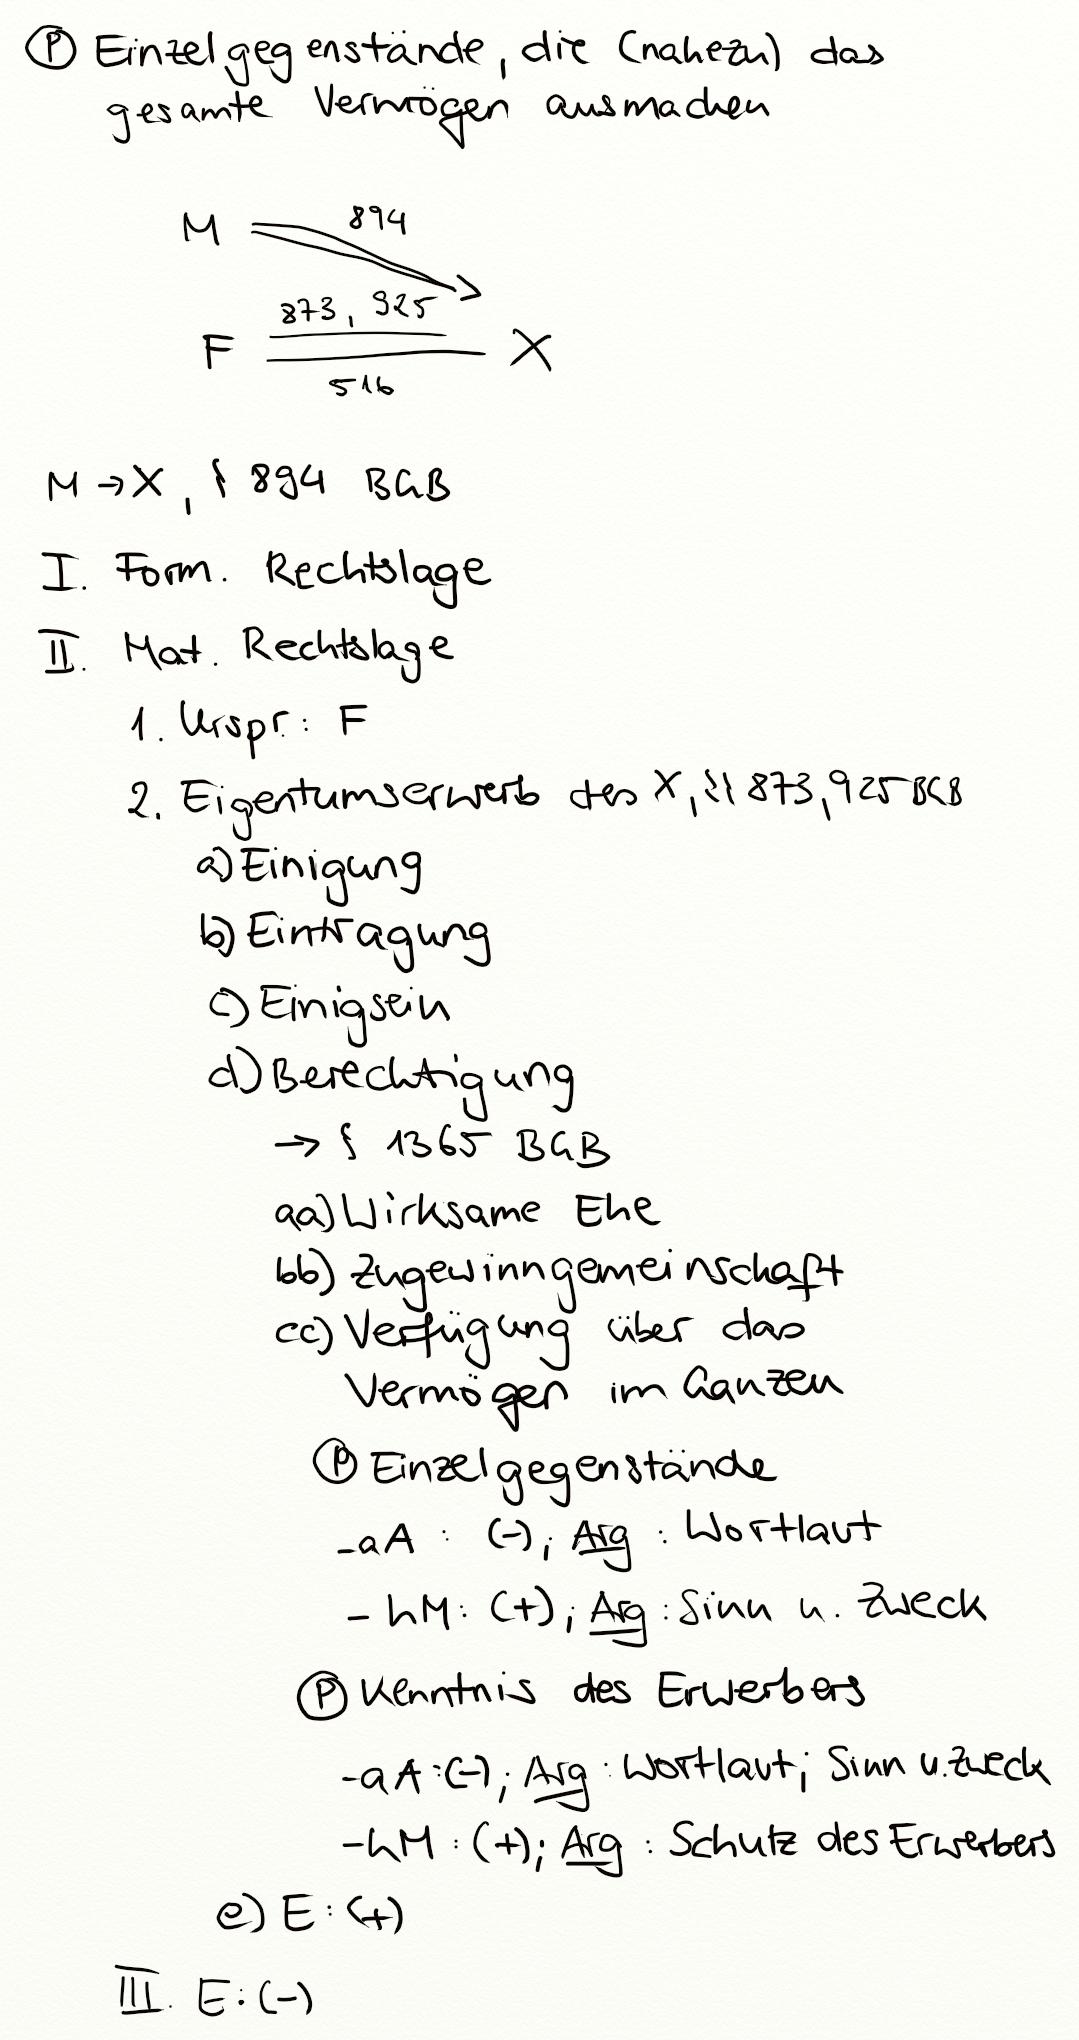 Ⓟ Einzelgegenstände, die (nahezu) das
gesamte Vermögen ausmachen
M 894
873, 925
F X
516
M → X, § 894 BGB
I. Form. Rechtslage
II. Mat. Rechtslage
1. Urspr.: F
2. Eigentumserwerb des X, §§ 873, 925 BGB
a) Einigung
b) Eintragung
c) Einigsein
d) Berechtigung
→ § 1365 BGB
aa) Wirksame Ehe
bb) Zugewinngemeinschaft
cc) Verfügung über das
Vermögen im Ganzen
Ⓟ Einzelgegenstände
- aA : (-); Arg : Wortlaut
- hM: (+); Arg : Sinn u. Zweck
Ⓟ Kenntnis des Erwerbers
- aA : (-); Arg : Wortlaut; Sinn u. Zweck
- hM : (+); Arg : Schutz des Erwerbers
e) E : (+)
III. E : (-)